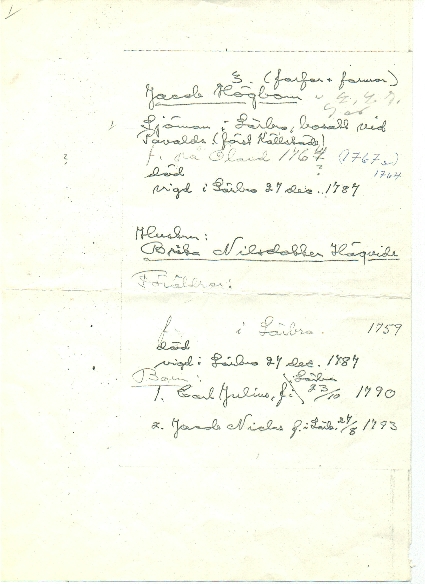 3. (farfar + farmor)
Jacob Högbom
Sjöman i Lärbro, bosatt vid
Pavalds (först Källstäde)
f. på Öland 1764 (1767
död ? 1764
vigd i Lärbro 27 dec. 1787
Hustru:
Brita Nilsdotter Häqvide
Föräldrar:
f. i Lärbro. 1759
död
vigd i Lärbro 27 dec. 1787
Barn:
1. Carl Julius, f. i Lärbro 23/10 1790
2. Jacob Niclas f. i Lärb. 27/8 1793